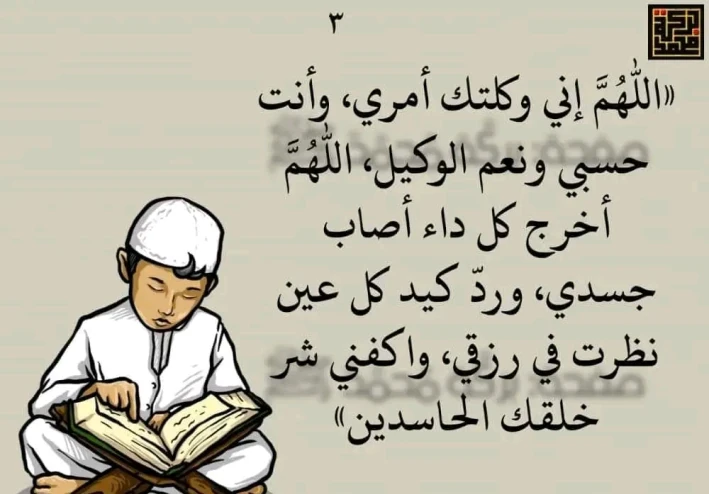 ٣
«اللّٰهُمَّ إني وكلتك أمري، وأنت
حسبي ونعم الوكيل، اللّٰهُمَّ
أخرج كل داء أصاب
جسدي، وردّ كيد كل عين
نظرت في رزقي، واكفني شر
خلقك الحاسدين»